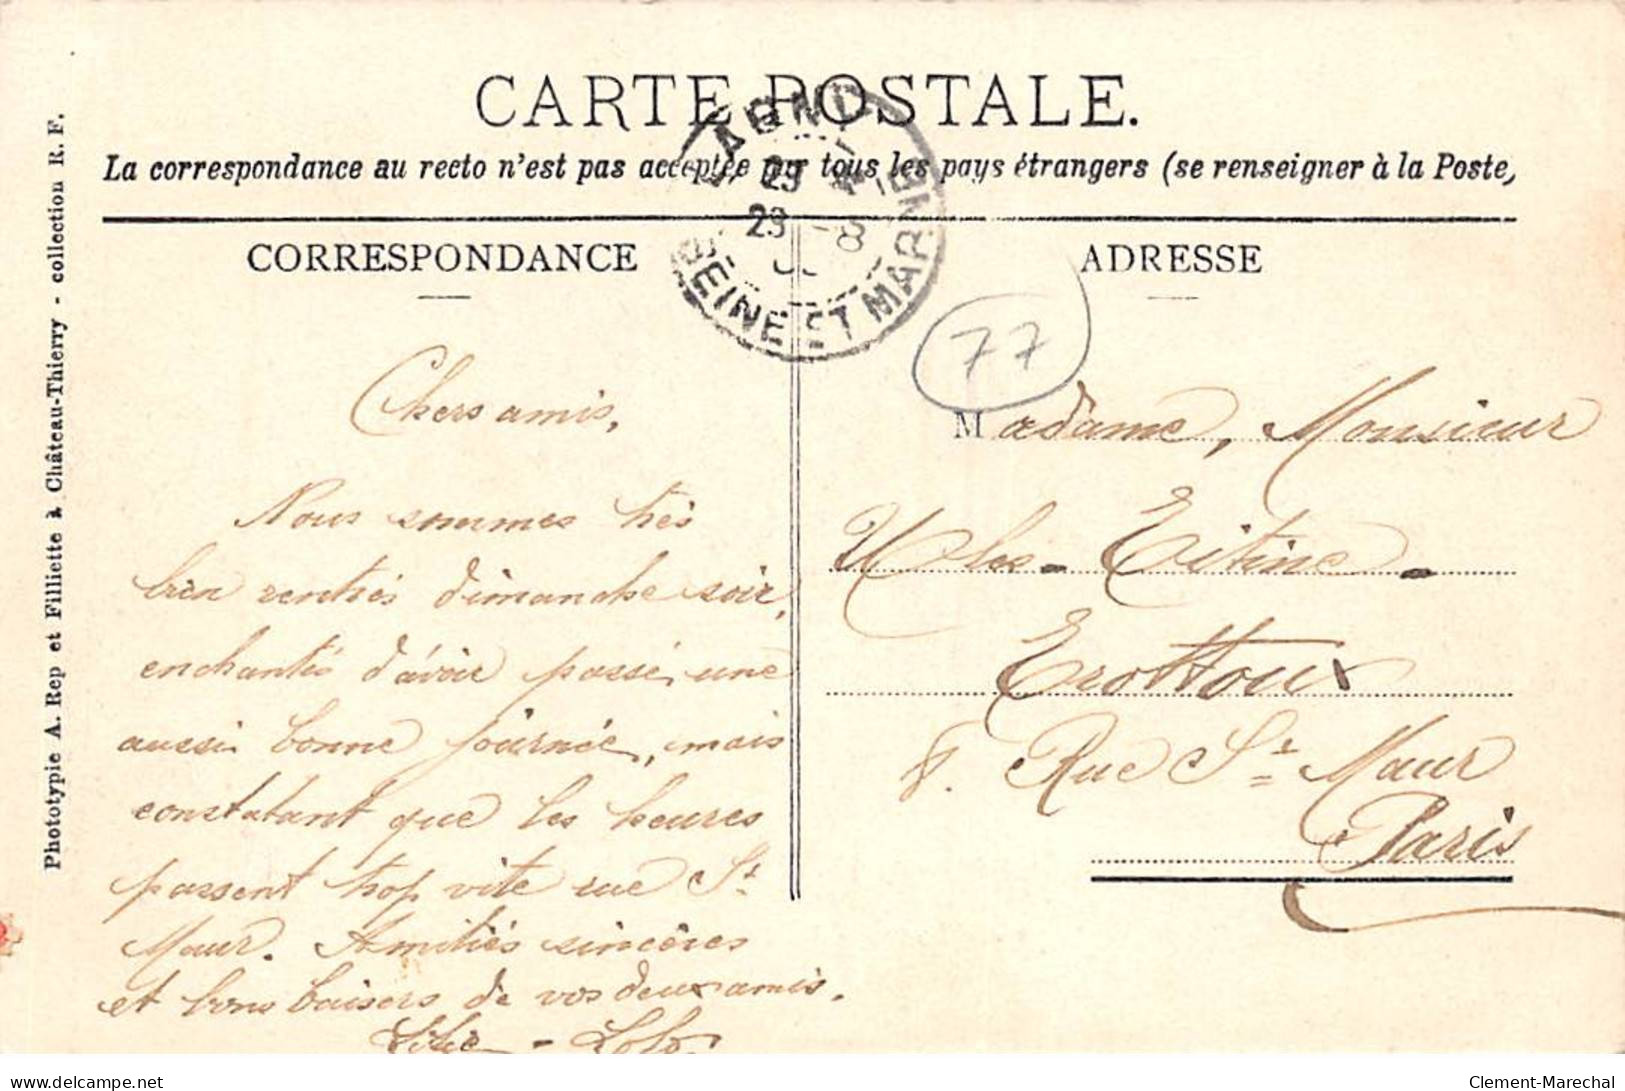 CARTE POSTALE.
La correspondance au recto n'est pas acceptée par tous les pays étrangers (se renseigner à la Poste,
LAGNY
29 -8
SEINE ET MARNE
CORRESPONDANCE
Chers amis,
Nous sommes très
bien rentrés dimanche soir,
enchantés d'avoir passé une
aussi bonne journée, mais
constatant que les heures
passent trop vite rue St
Maur. Amitiés sincères
et bons baisers de vos deux amis.
Lolo
ADRESSE
77
Madame, Monsieur
8. Rue St Maur
Paris
Phototypie A. Rep et Filliette à Château-Thierry - collection R. F.
delcampe.net
Clement-Marechal